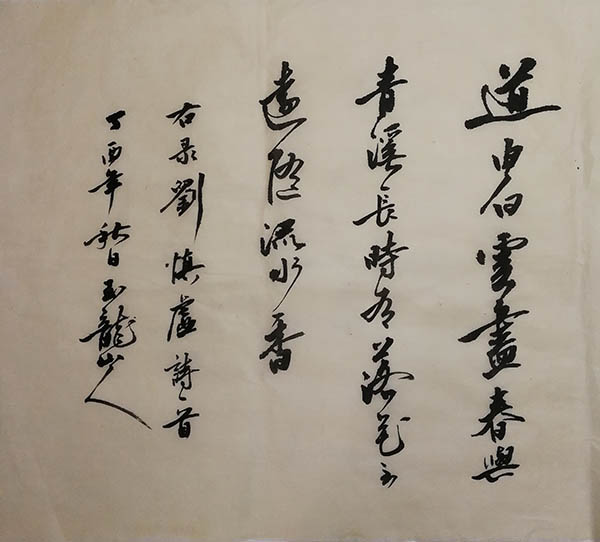 道由白雲盡春與
青溪長時有落花至
遠隨流水香
右录劉慎虛詩一首
丁酉年秋日玉龍山人